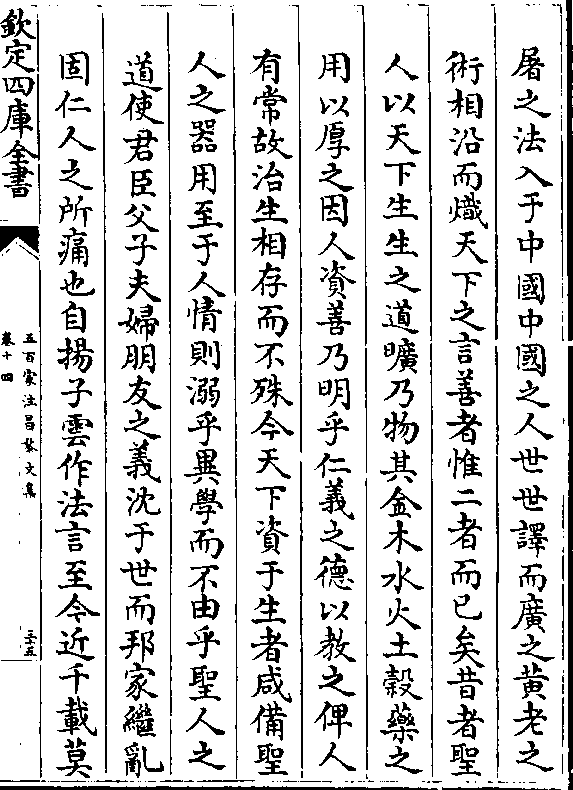 屠之法入于中國中國之人世世譯而廣之黄老之
術相沿而熾天下之言善者惟二者而已矣昔者聖
人以天下生生之道曠乃物其金木水火土榖藥之
用以厚之因人資善乃明乎仁義之德以教之俾人
有常故治生相存而不殊今天下資于生者咸備聖
人之器用至于人情則溺乎異學而不由乎聖人之
道使君臣父子夫婦朋友之義沈于世而邦家繼亂
固仁人之所痛也自揚子雲作法言至今近千載莫
欽定四庫全書
五百家注昌黎文集
卷十四
三十五